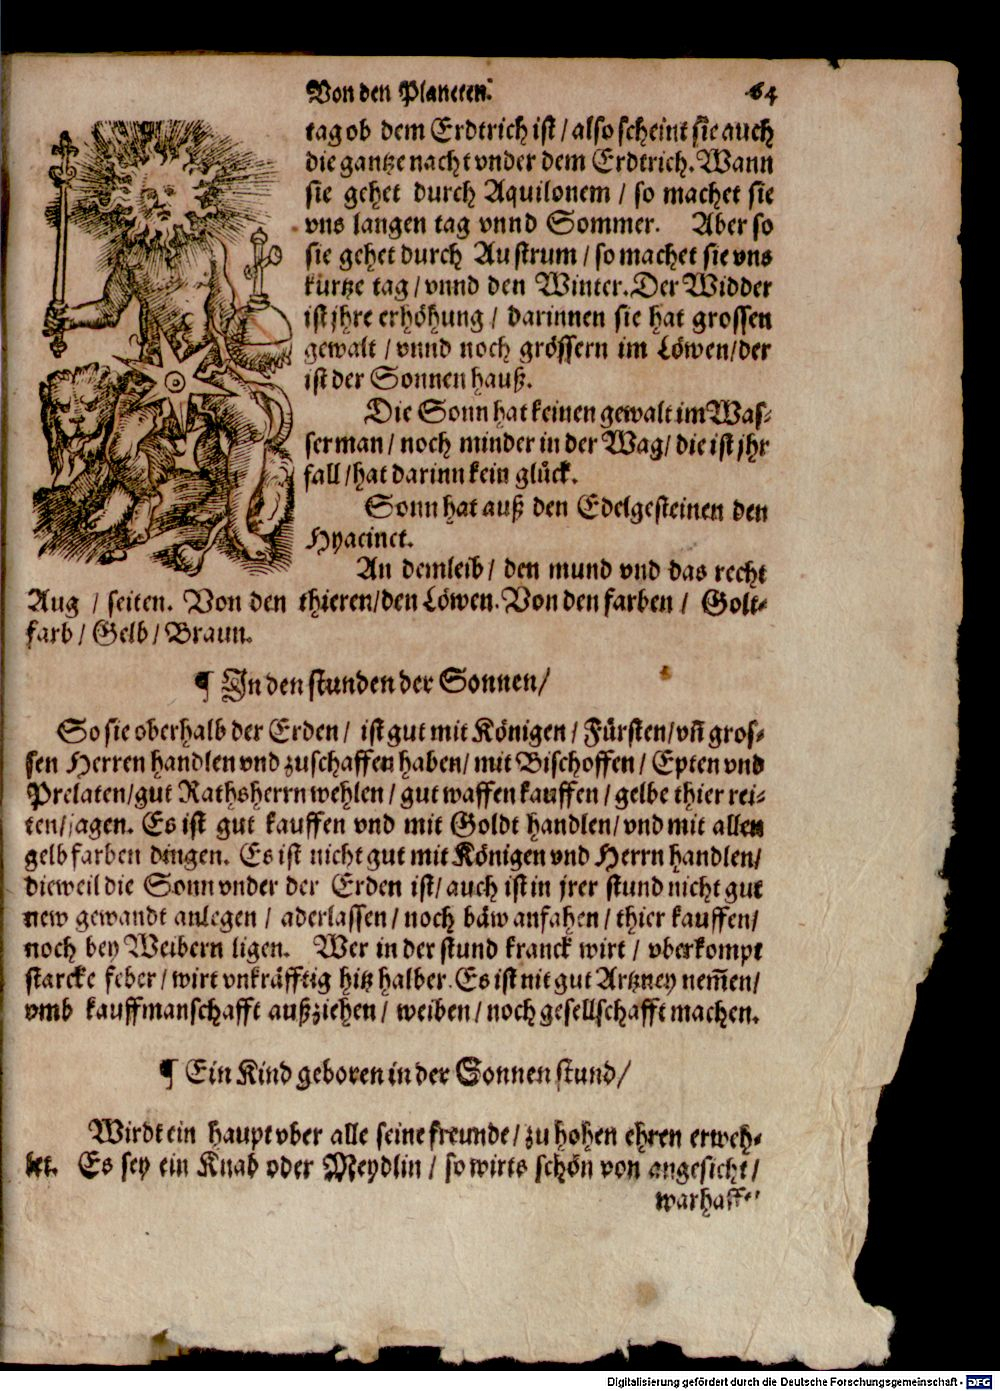 Von den Planeten. 64
tag ob dem Erdtrich ist / also scheint sie auch
die gantze nacht vnder dem Erdtrich. Wann
sie gehet durch Aquilonem / so machet sie
vns langen tag vnnd Sommer. Aber so
sie gehet durch Austrum / so machet sie vns
kurtze tag / vnnd den Winter. Der Widder
ist jhre erhöhung / darinnen sie hat grossen
gewalt / vnnd noch grössern im Löwen / der
ist der Sonnen hauß.
Die Sonn hat keinen gewalt im Was-
serman / noch minder in der Wag / die ist jhr
fall / hat darinn kein glück.
Sonn hat auß den Edelgesteinen den
Hyacinct.
An dem leib / den mund vnd das recht
Aug / seiten. Von den thieren / den Löwen. Von den farben / Golt-
farb / Gelb / Braun.
¶ In den stunden der Sonnen /
So sie oberhalb der Erden / ist gut mit Königen / Fürsten / vñ gros-
sen Herren handlen vnd zuschaffen haben / mit Bischoffen / Epten vnd
Prelaten / gut Rathsherrn wehlen / gut waffen kauffen / gelbe thier rei-
ten / jagen. Es ist gut kauffen vnd mit Goldt handlen / vnd mit allen
gelbfarben dingen. Es ist nicht gut mit Königen vnd Herrn handlen /
dieweil die Sonn vnder der Erden ist / auch ist in jrer stund nicht gut
new gewandt anlegen / aderlassen / noch bäw anfahen / thier kauffen /
noch bey Weibern ligen. Wer in der stund kranck wirt / vberkompt
starcke feber / wirt vnkräfftig hitz halber. Es ist nit gut Artzney nem̄en /
vmb kauffmanschafft außziehen / weiben / noch gesellschafft machen.
¶ Ein Kind geboren in der Sonnen stund /
Wirdt ein haupt vber alle seine freunde / zu hohen ehren erweh-
let. Es sey ein Knab oder Meydlin / so wirts schön von angesicht /
warhaff-
Digitalisierung gefördert durch die Deutsche Forschungsgemeinschaft - DFG